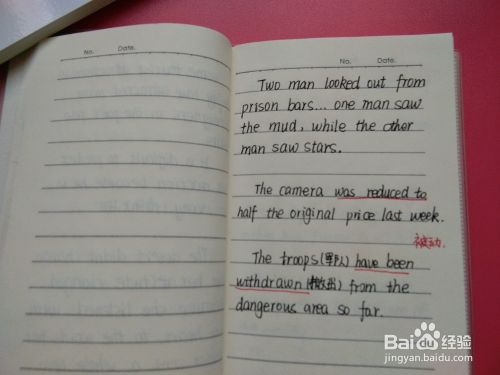 No. Date.
No. Date.
Two man looked out from
prison bars... one man saw
the mud, while the other
man saw stars.
The camera was reduced to
half the original price last week.
被动.
The troops(军队) have been
withdrawn(撤出) from the
dangerous area so far.
Baidu经验
jingyan.baidu.com